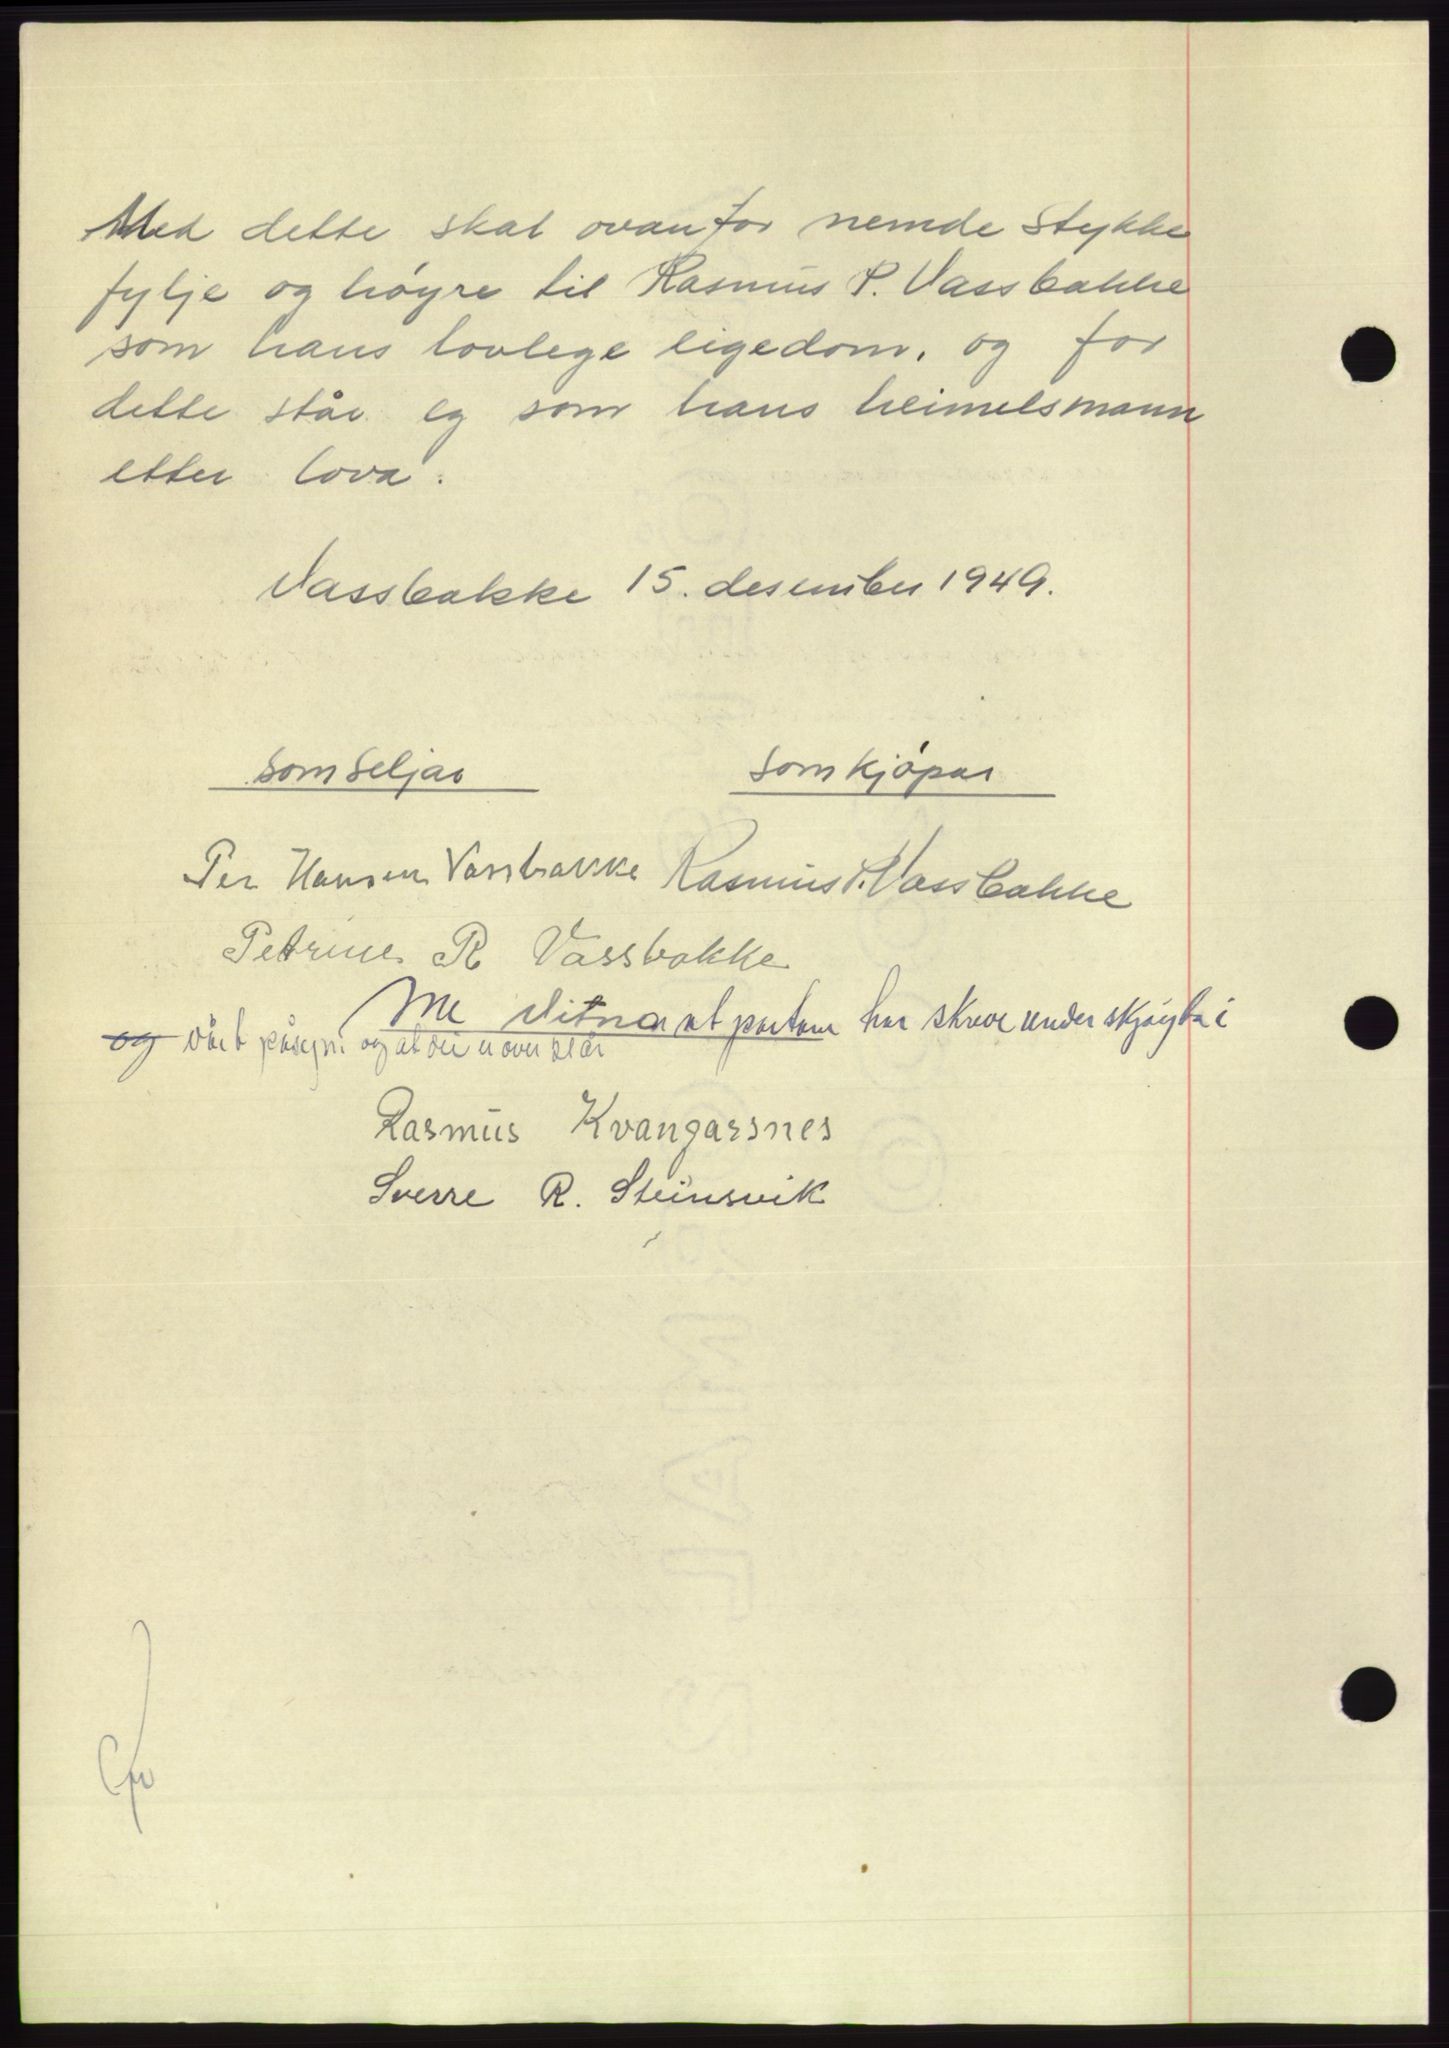 Med dette skal ovanfor nemde stykke
fylje og höyre til Rasmus P. Vassbakke
som hans lovlege eigedom, og for
dette står eg som hans heimelsmann
etter lova.
Vassbakke 15. desember 1949.
som seljar som kjöpar
Per Hansen Vassbakke Rasmus P. Vassbakke
Petrine R Vassbakke
Me vitnar at partane har skreve under skjöyta i
og vårt påsyn og at dei er over 21 år
Rasmus Kvangarsnes
Sverre R. Steinsvik